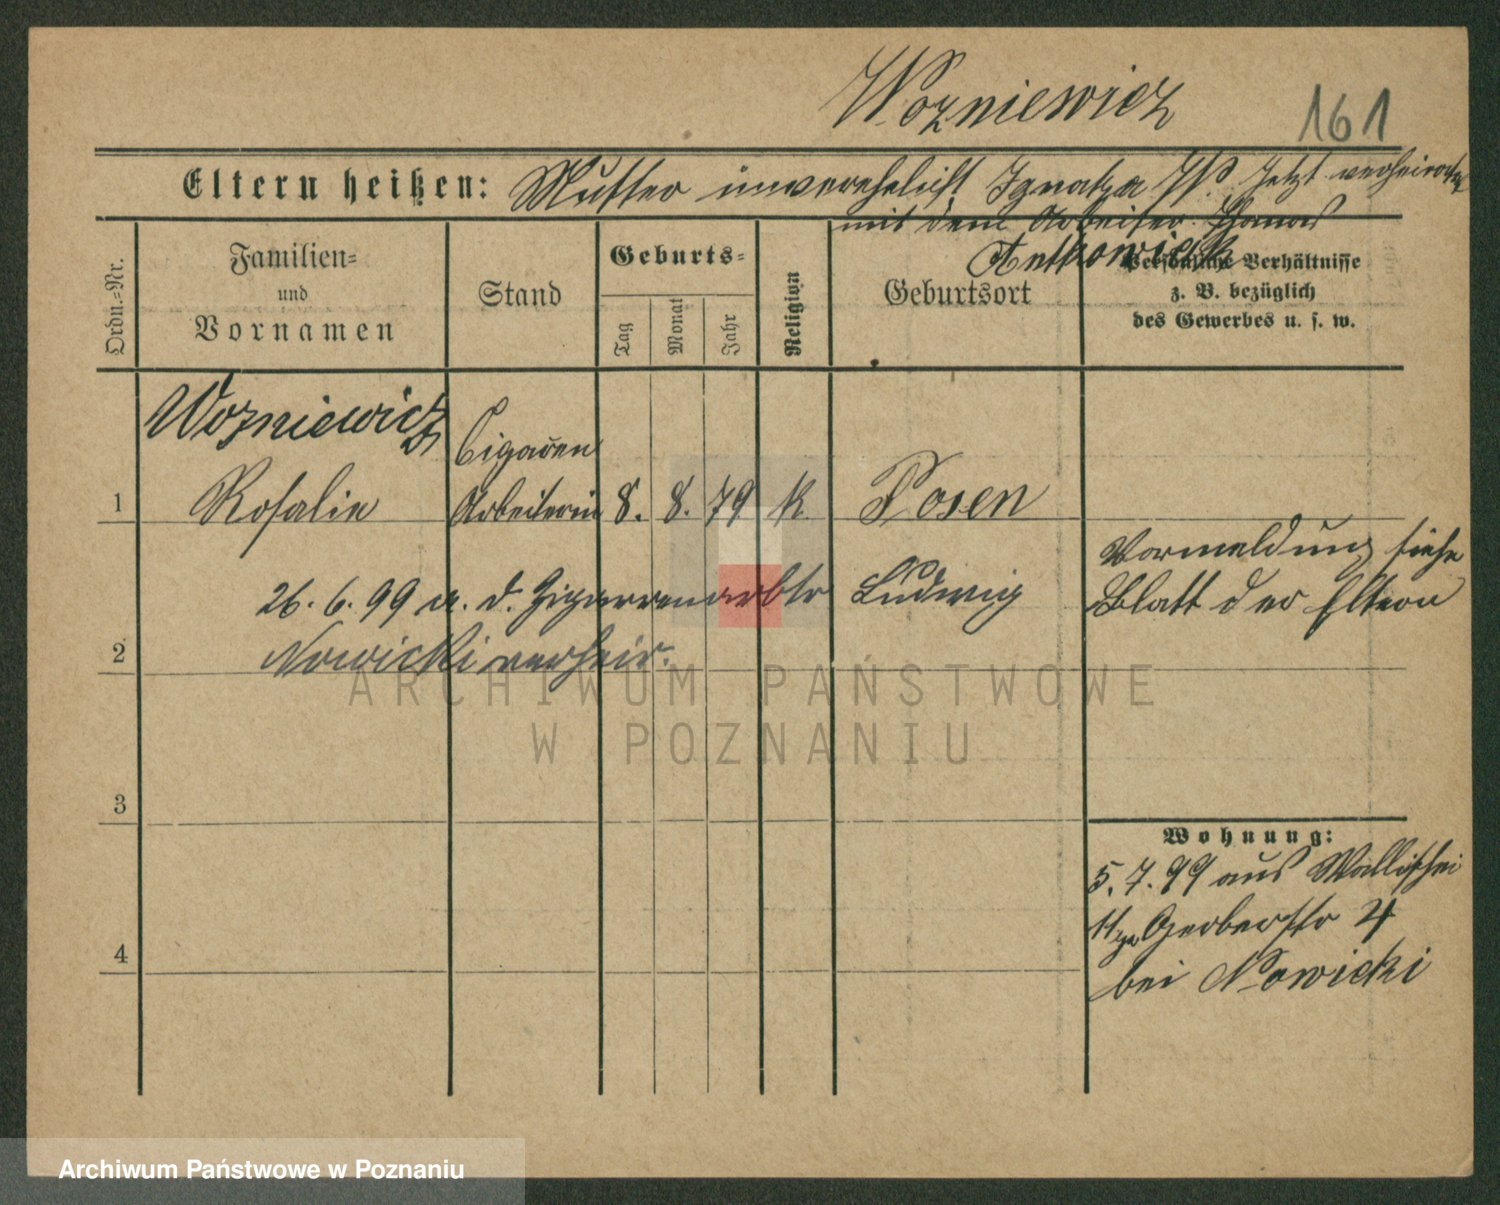 Wozniewicz
161
Eltern heißen: Mutter unverehelicht Ignatza W. Jetzt verheiratet
mit dem Arbeiter Thomas
Antkowiak
Ordn.=Nr.
Familien=
und
Vornamen
Stand
Geburts=
Tag
Monat
Jahr
Religion
Geburtsort
Persönliche Verhältnisse
z. B. bezüglich
des Gewerbes u. s. w.
Wozniewicz
Cigaren
1 Rosalie Arbeiterin 8. 8. 79 k. Posen
Vormeldung siehe
26. 6. 99 a. d. Zigarrenarbtr Ludwig Blatt der Eltern
2 Nowicki verheir.
3
Wohnung:
5. 7. 99 aus Wallischei
11 Gerberstr 4
4
bei Nowicki
ARCHIWUM PAŃSTWOWE
W POZNANIU
Archiwum Państwowe w Poznaniu